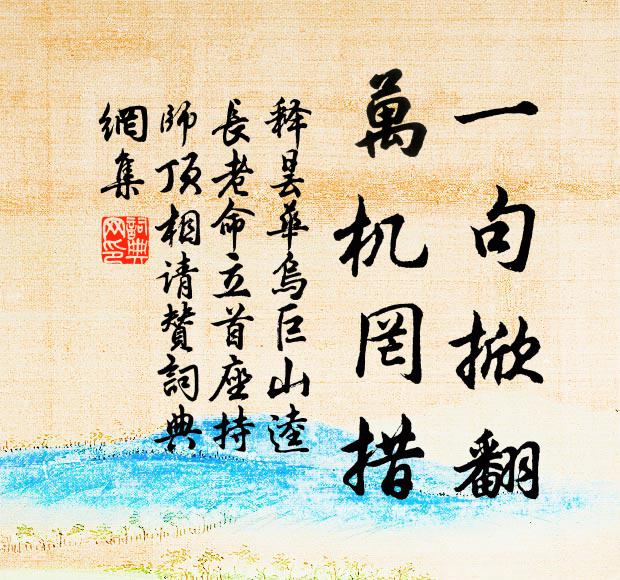 一句掀翻
萬机罔措
释昙華烏巨山逵
長老命立首座持
师顶相请赞詞典
網集
詞典
网印